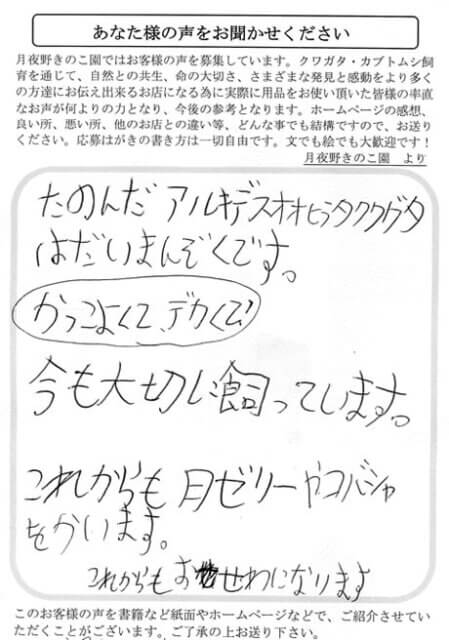 あなた様の声をお聞かせください
月夜野きのこ園ではお客様の声を募集しています。クワガタ・カブトムシ飼
育を通じて、自然との共生、命の大切さ、さまざまな発見と感動をより多く
の方達にお伝え出来るお店になる為に実際に用品をお使い頂いた皆様の率直
なお声が何よりの力となり、今後の参考となります。ホームページの感想、
良い所、悪い所、他のお店との違い等、どんな事でも結構ですので、お送り
ください。応募はがきの書き方は一切自由です。文でも絵でも大歓迎です！
月夜野きのこ園　より
たのんだ アルキデスオオヒラタククグタ
はだいまんぞくです。
かっこよくて デカくて
今も大切に飼っています。
これからも 月ゼリーやコバシャ
をかいます。
これからも おせわになります
このお客様の声を書籍など紙面やホームページなどで、ご紹介させてい
ただくことがございます。ご了承の上お送り下さい。